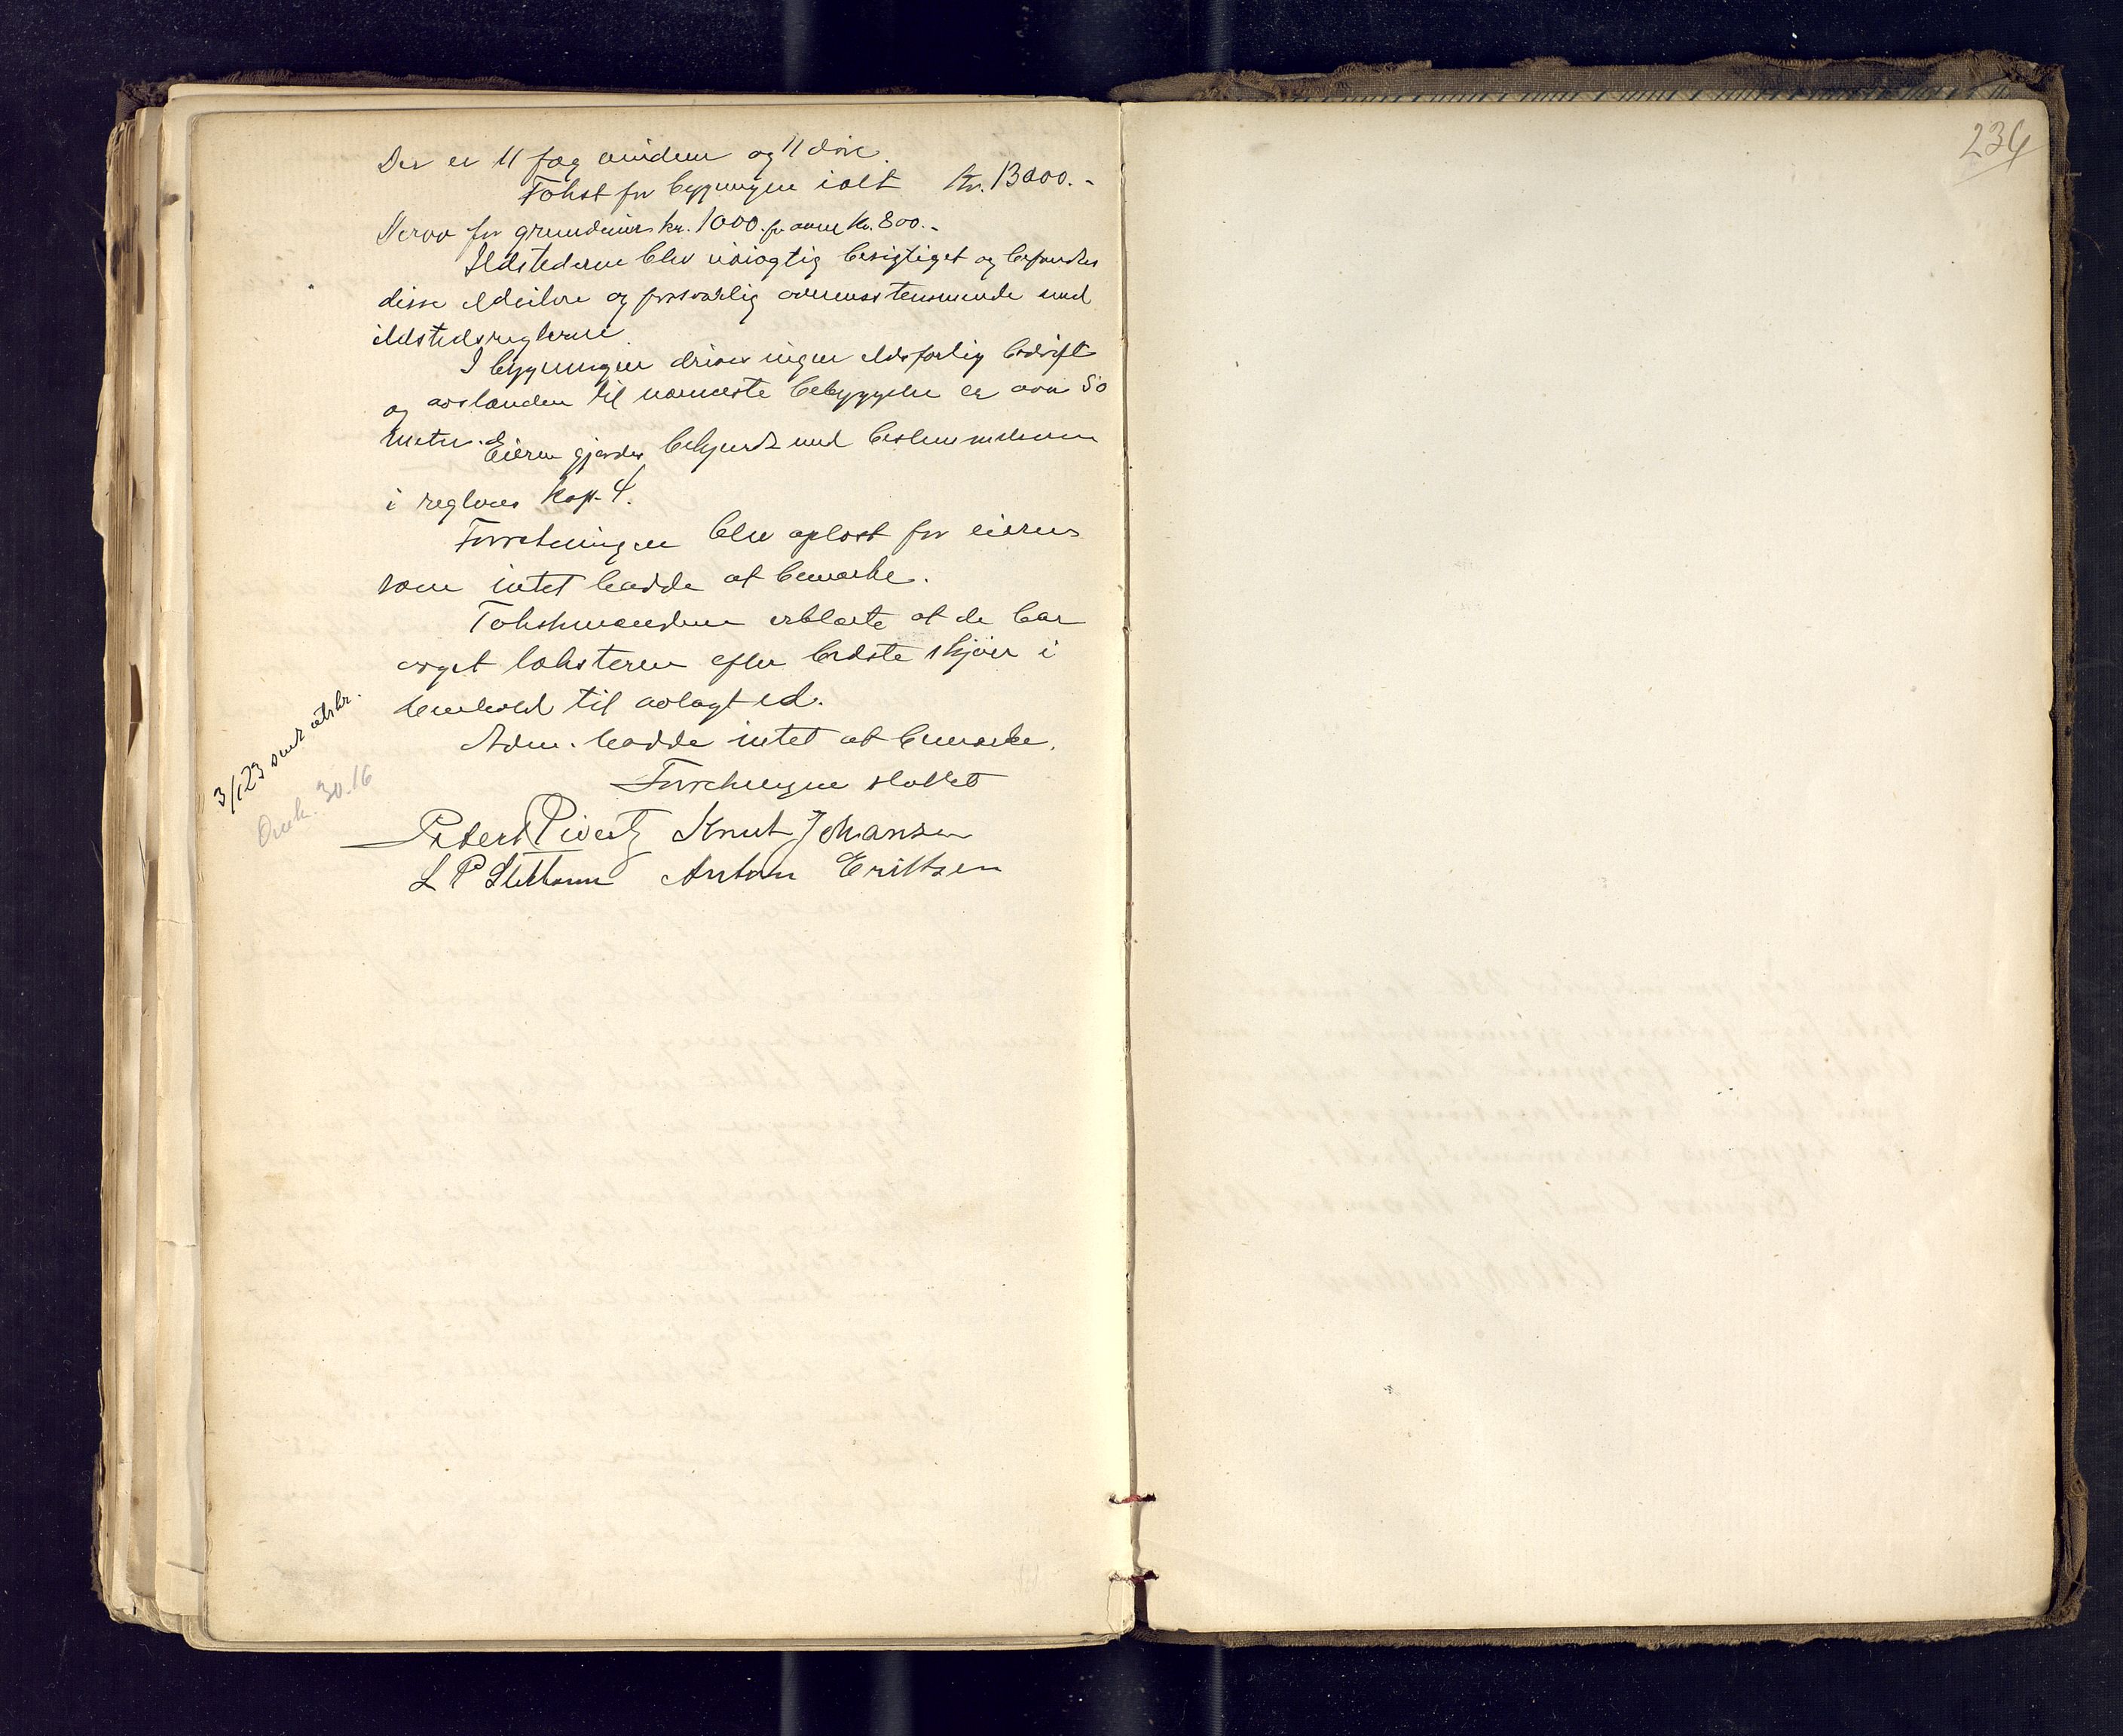 Der er 11 fag vinduer og 11 döre.
Takst for bygningen ialt Kr. 13000.-
Herav for grundmur kr. 1000. for ovne kr. 800.-
Ildstederne blev nöiagtig besigtiget og befandtes
disse ildsikre og forsvarlig overensstemmende med
ildstedsreglerne.
I bygningen drives ingen ildsfarlig bedrift
og avstanden til nærmeste bebyggelse er over 50
meter. Eieren gjordes bekjendt med bestemmelserne
i reglenes kap. 4.
Forretningen blev oplæst for eieren
som intet hadde at bemerke.
Takstmændene erklærte at de har
avgit taksterne efter bedste skjön i
henhold til avlagt ed.
Adm. hadde intet at bemerke.
Forretningen sluttet
3/1 23 sendt utskr.
30.16
Peder Knut Johansen
L P Anton Eriksen
234